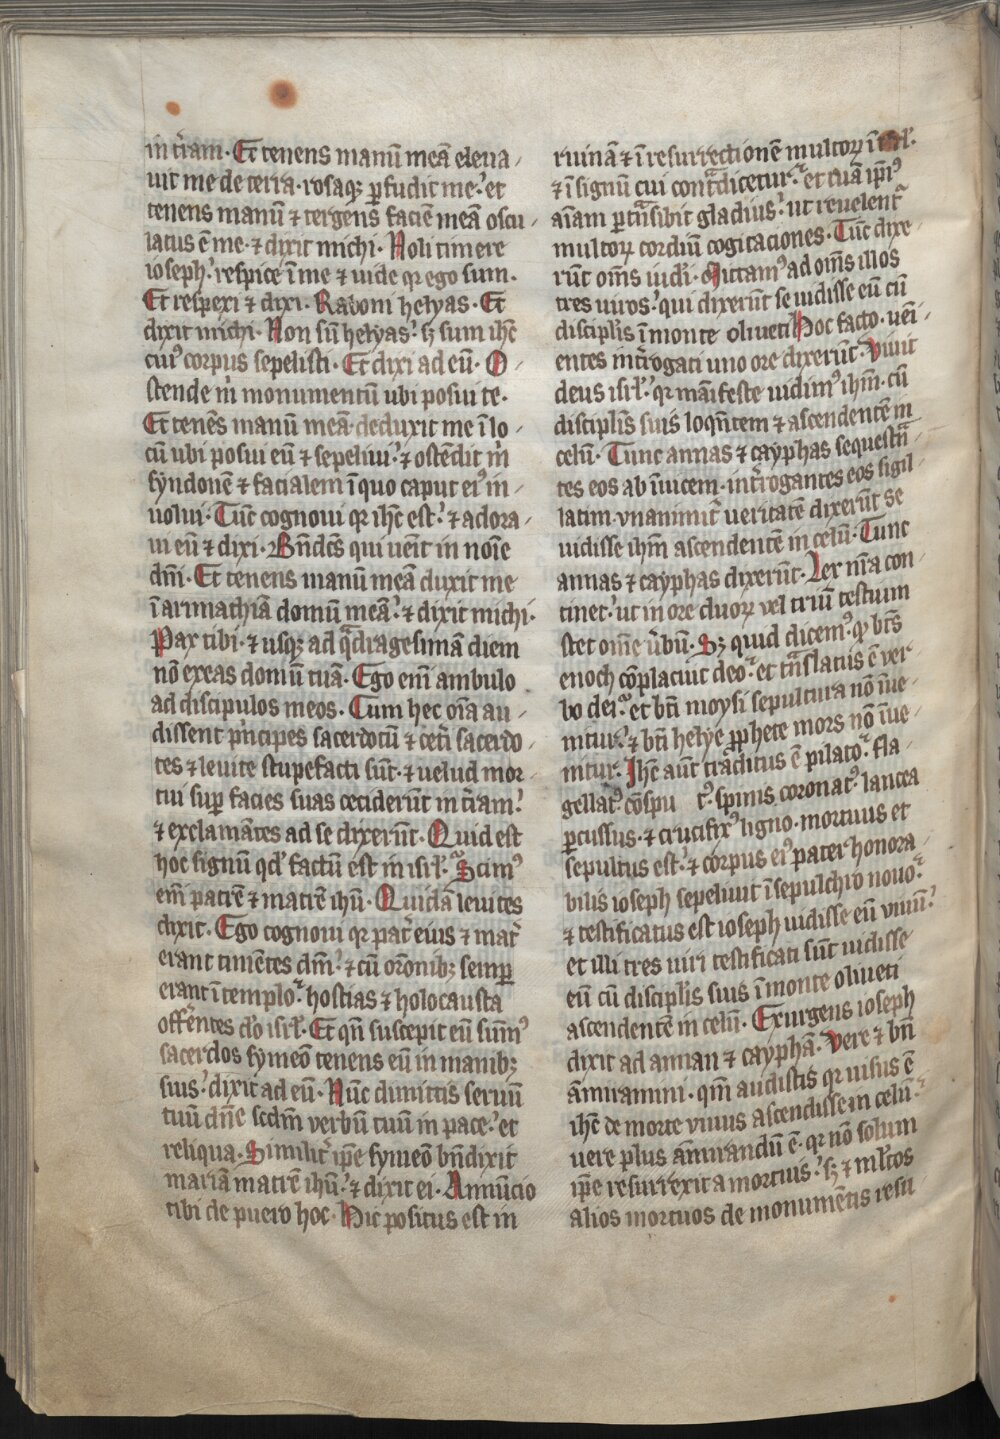 in t̄ram. Et tenens manū meā eleua-
uit me de terra. rosaqꝫ ꝑfudit me. et
tenens manū ⁊ tergens faciē meā oscu-
latus ē me. ⁊ dixit michi. Noli timere
ioseph. respice ī me ⁊ uide qr ego sum.
Et respexi ⁊ dixi. Raboni helyas. Et
dixit michi. Non sū helyas. sꝫ sum ihc̄
cuiꝰ corpus sepelisti. Et dixi ad eū. O-
stende m̄ monumentū ubi posui te.
Et tenēs manū meā deduxit me ī lo-
cū ubi posui eū ⁊ sepeliui. ⁊ ostēdit m̄
syndonē ⁊ facialem ī quo caput eiꝰ in-
uolui. Tūc cognoui qr ihc̄ est. ⁊ adora-
ui eū ⁊ dixi. Bn̄dc̄s qui uēit in noīe
dn̄i. Et tenens manū meā duxit me
ī arimathiā domū meā. ⁊ dixit michi.
Pax tibi. ⁊ usqꝫ ad qͣdragesimā diem
nō exeas domū tuā. Ego eni ambulo
ad discipulos meos. Cum hec oīa au-
dissent pͥncipes sacerdotū ⁊ cet̄i sacerdo-
tes ⁊ leuite stupefacti sūt. ⁊ uelud mor-
tui suꝑ facies suas ceciderūt in t̄ram.
⁊ exclamātes ad se dixerūt. Quid est
hoc signū qd̄ factū est in isrl̄. Scimꝰ
em̄ patrē ⁊ matrē ihū. Quidā leuites
dixit. Ego cognoui qr pat̄ eius ⁊ mat̄
erant timētes dm̄. ⁊ cū orōnibꝫ semꝑ
erant ī templo. hostias ⁊ holocausta
offerētes dō isrl̄. Et qn̄ suscepit eū sūmꝰ
sacerdos symeō tenens eū in manibꝫ
suis. dixit ad eū. Nūc dimittis seruū
tuū dn̄e scdm̄ verbū tuū in pace. et
reliqua. Similit̄ ip̄e symeō bn̄dixit
mariā matrē ihū. ⁊ dixit ei. Annūcio
tibi de puero hoc. Hic positus est in
ruinā ⁊ ī resurrectionē multoꝝ ī isrl̄.
⁊ ī signū cui contͣdicetur. et tuā ip̄iꝰ
aīam ꝑtͣnsibit gladius. ut reuelent̄
multoꝝ cordiū cogitaciones. Tūc dixe-
rūt om̄s iudi. Mittamꝰ ad om̄s illos
tres uiros. qui dixerūt se uidisse eū cū
discipl̄is ī monte oliueti. Hoc facto. ueī-
entes int̄rogati uno ore dixerūt. Viuit
deus isrl̄. qr māifeste uidimꝰ ihm̄. cū
discipl̄is suis loqn̄tem ⁊ ascendentē in
celū. Tunc annas ⁊ cayphas sequestͣ-
tes eos ab īuicem. int̄rogantes eos sigil-
latim. vnanimit̄ ueritatē dixerūt se
uidisse ihm̄ ascendentē in celū. Tunc
annas ⁊ cayphas dixerūt. Lex nr̄a con-
tinet. ut in ore duoꝝ vel triū testium
stet om̄e ūbū. Sꝫ quid dicemꝰ. qꝫ bt̄s
enoch cōplacuit deo. et tͣnslatus ē ver-
bo dei. et bt̄i moysi sepultura nō īue-
nitur. ⁊ bt̄i helye ꝓphete mors nō īue-
nitur. Ihc̄ aūt traditus ē pilato. fla-
gellatꝰ. cōspu tꝰ. spinis coronatꝰ. lancea
ꝑcussus. ⁊ crucifixꝰ ligno. mortuus et
sepultus est. ⁊ corpus eiꝰ pater honora-
bilis ioseph sepeliuit ī sepulchro nouo.
⁊ testificatus est ioseph uidisse eū viuū.
et illi tres uiri testificati sūt uidisse
eū cū discipl̄is suis ī monte oliueti
ascendentē in celū. Exurgens ioseph
dixit ad annan ⁊ cayphā. Vere ⁊ bn̄
āmiramini. qm̄ audistis qr uisus ē
ihc̄ de morte viuus ascendisse in celū.
uere plus āmirandū ē. qr nō solum
ip̄e resurrexit a mortuis. sꝫ ⁊ ml̄tos
alios mortuos de monumētis resu